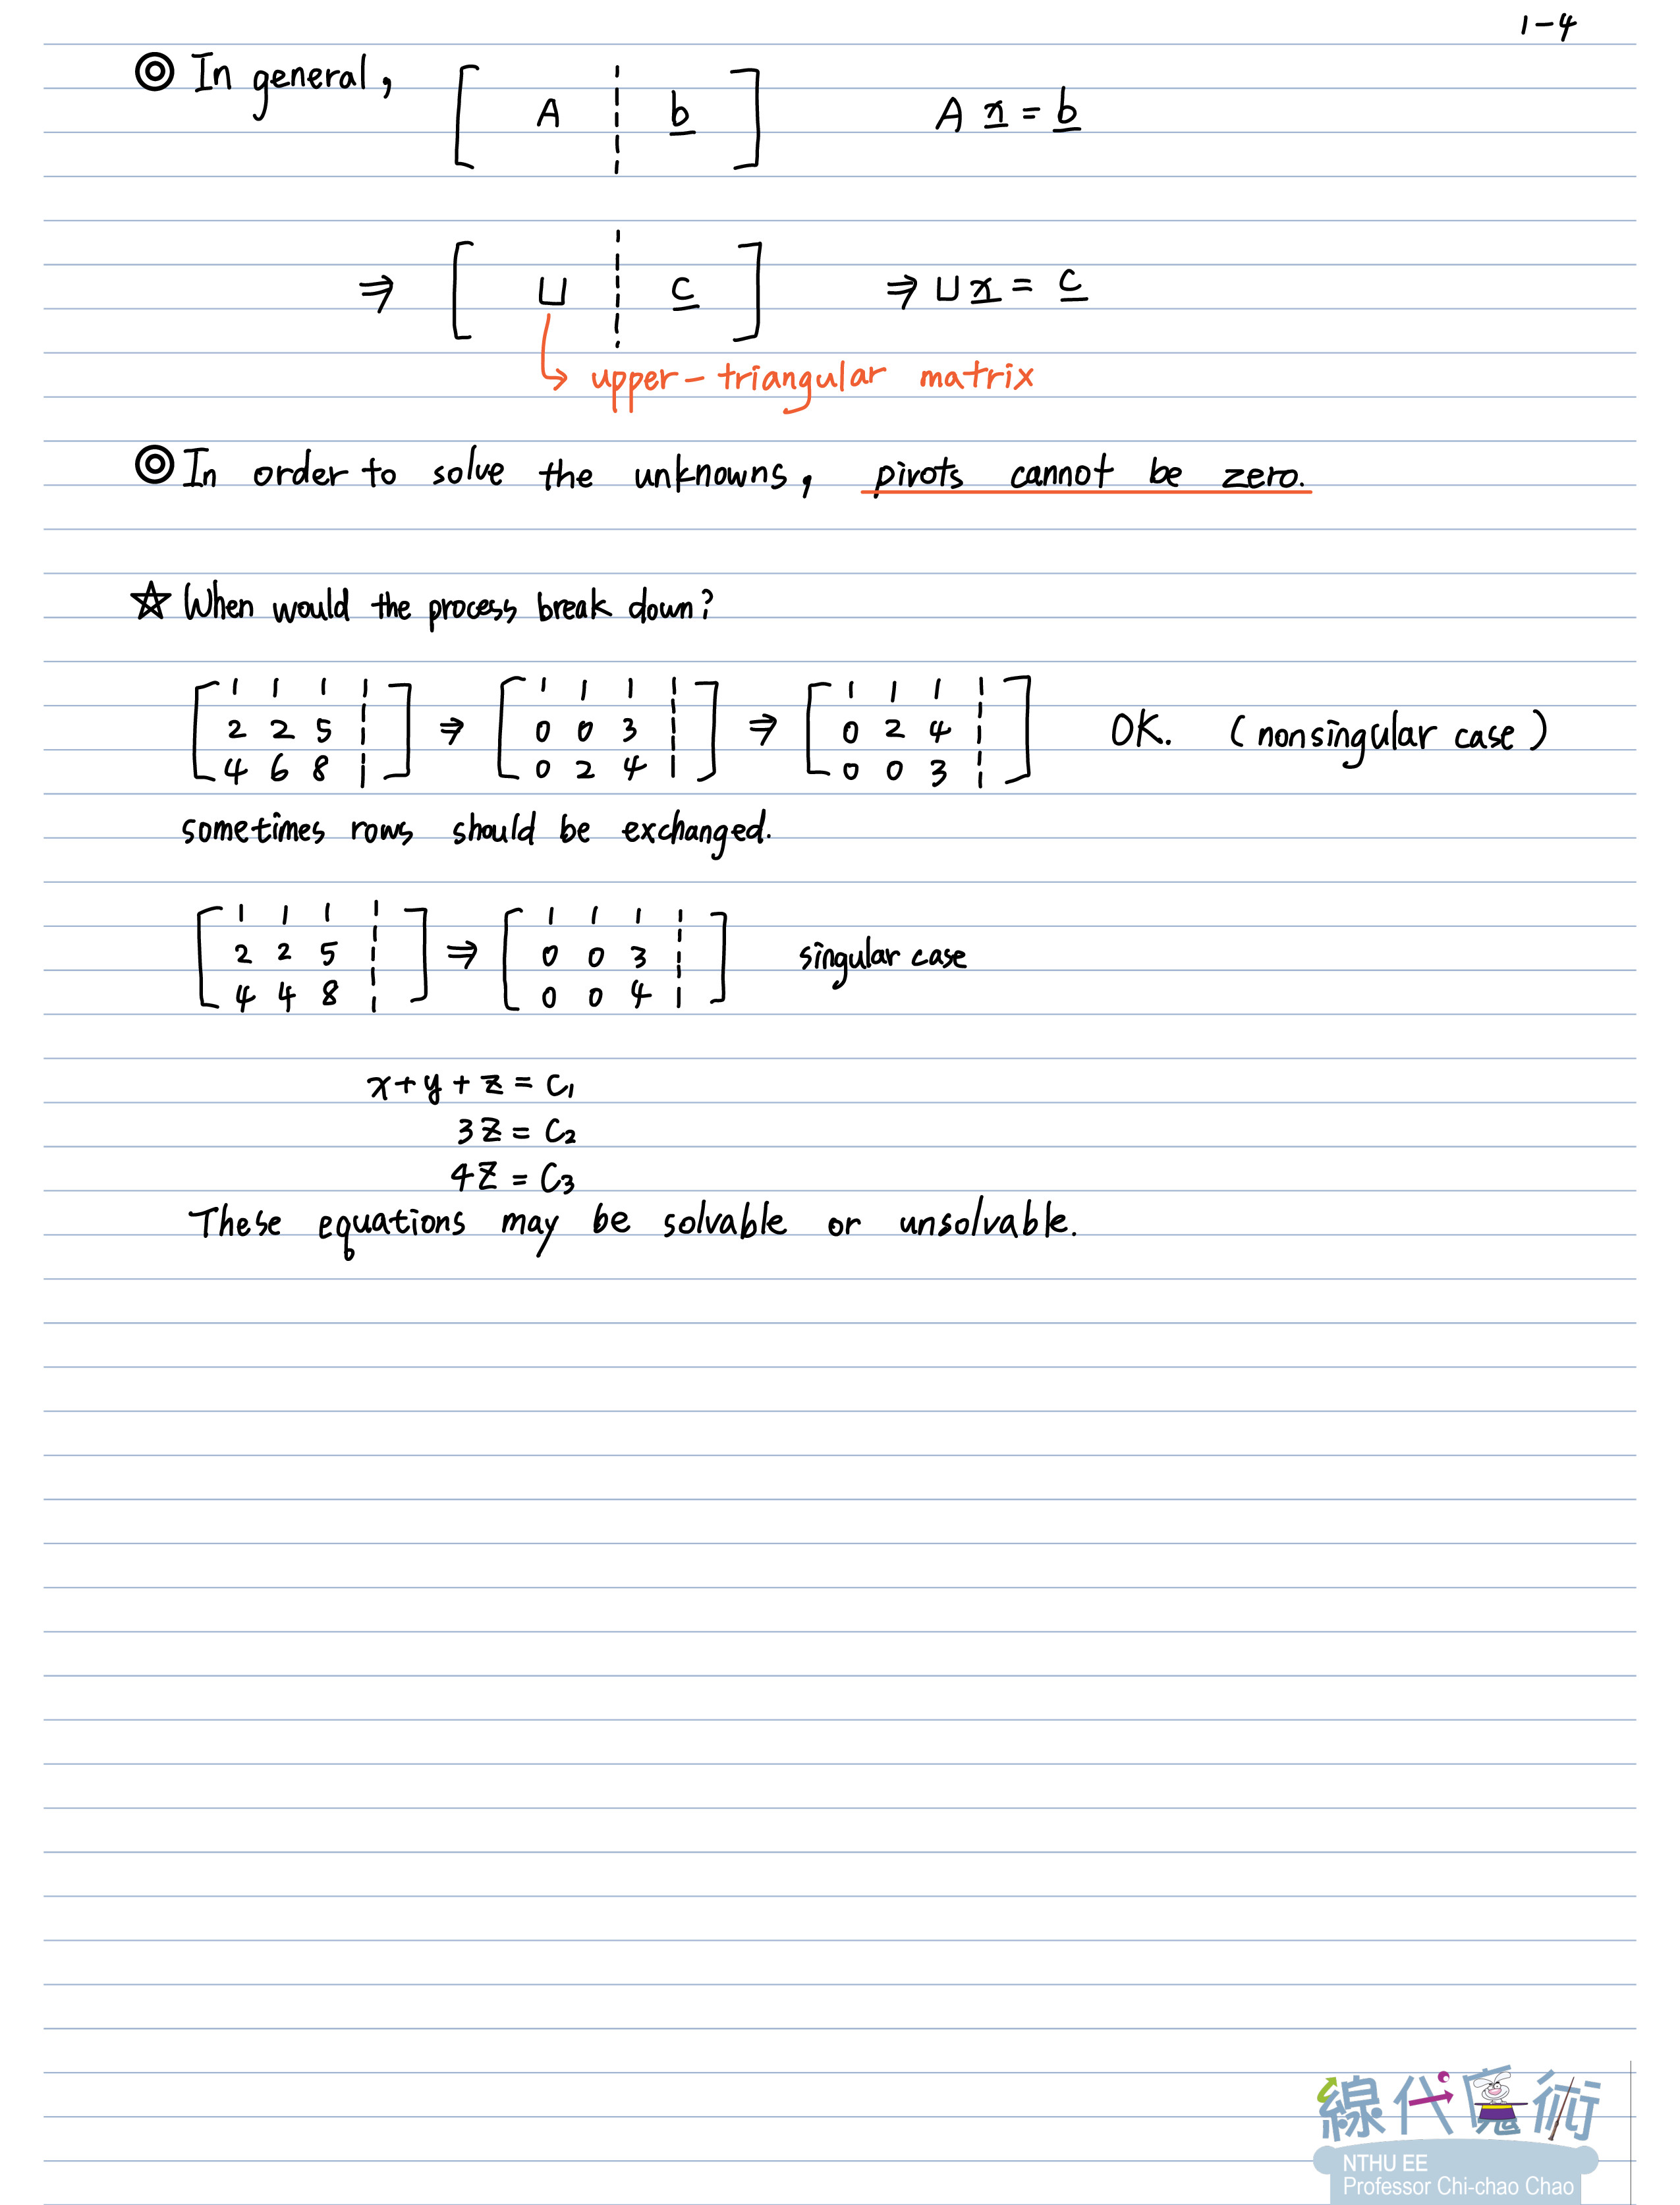 1-4
◎ In general, [ A ¦ b ] A x = b
⇒ [ U ¦ c ] ⇒ U x = c
upper-triangular matrix
◎ In order to solve the unknowns, pivots cannot be zero.
☆ When would the process break down?
[ 1 1 1 ¦ ] ⇒ [ 1 1 1 ¦ ] ⇒ [ 1 1 1 ¦ ]
[ 2 2 5 ¦ ] ⇒ [ 0 0 3 ¦ ] ⇒ [ 0 2 4 ¦ ] OK. (nonsingular case)
[ 4 6 8 ¦ ] ⇒ [ 0 2 4 ¦ ] ⇒ [ 0 0 3 ¦ ]
sometimes rows should be exchanged.
[ 1 1 1 ¦ ] ⇒ [ 1 1 1 ¦ ]
[ 2 2 5 ¦ ] ⇒ [ 0 0 3 ¦ ] singular case
[ 4 4 8 ¦ ] ⇒ [ 0 0 4 ¦ ]
x+y+z = c₁
3z = c₂
4z = c₃
These equations may be solvable or unsolvable.
線代魔術
NTHU EE
Professor Chi-chao Chao